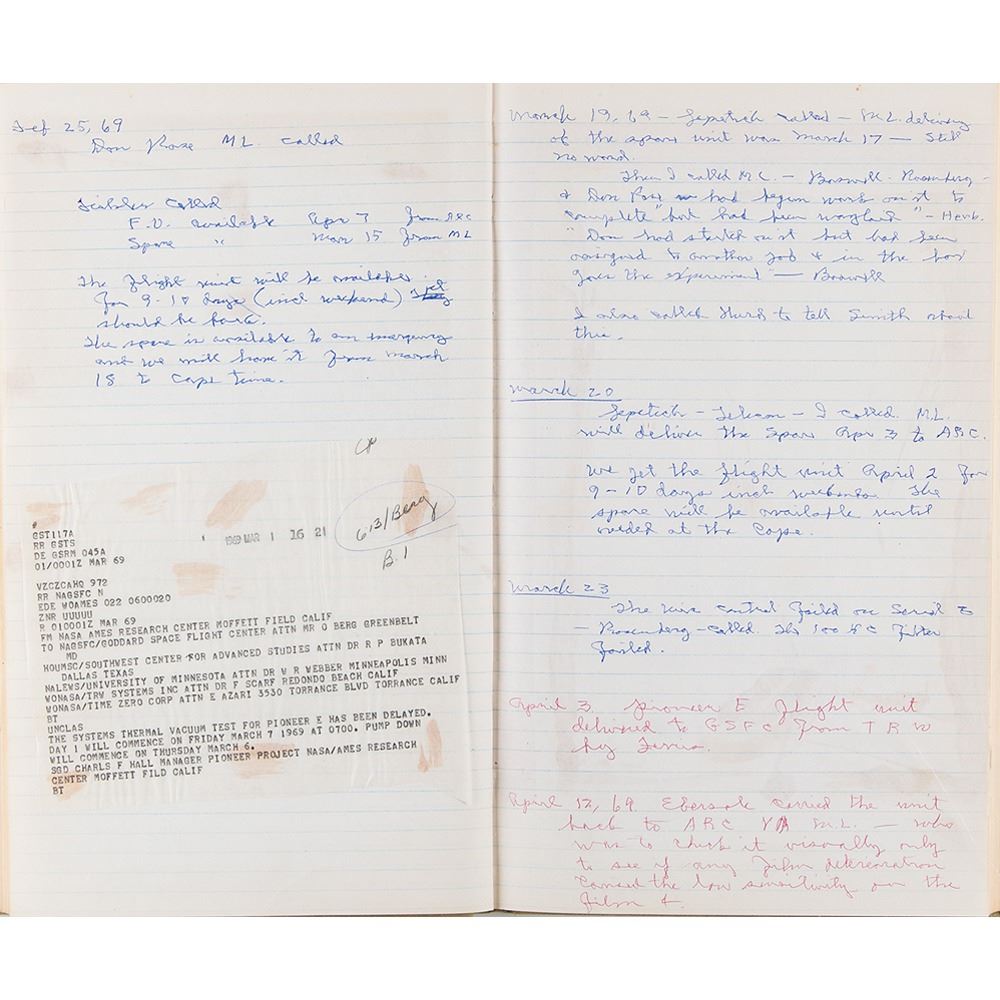 Feb 25, 69
Don Rose ML called
called
F.U. available Apr 7 from ARC
Spare " Mar 15 from ML
The flight unit will be available
for 9-10 days (incl weekend)
should be back.
The spare is available in an emergency
and we will have it from March
18 to Cape time.
#
GST117A
RR GSTS
DE GSRM 045A
01/0001Z MAR 69
1969 MAR 1 16 21
613/Berg
B.1
VZCZCAHQ 972
RR NAGSFC N
EDE WOAMES 022 0600020
ZNR UUUUU
R 010001Z MAR 69
FM NASA AMES RESEARCH CENTER MOFFETT FIELD CALIF
TO NAGSFC/GODDARD SPACE FLIGHT CENTER ATTN MR O BERG GREENBELT
MD
HOUMSC/SOUTHWEST CENTER FOR ADVANCED STUDIES ATTN DR R P BUKATA
DALLAS TEXAS
NALEWS/UNIVERSITY OF MINNESOTA ATTN DR W R WEBBER MINNEAPOLIS MINN
WONASA/TRW SYSTEMS INC ATTN DR F SCARF REDONDO BEACH CALIF
WONASA/TIME ZERO CORP ATTN E AZARI 3530 TORRANCE BLVD TORRANCE CALIF
BT
UNCLAS
THE SYSTEMS THERMAL VACUUM TEST FOR PIONEER E HAS BEEN DELAYED.
DAY 1 WILL COMMENCE ON FRIDAY MARCH 7 1969 AT 0700. PUMP DOWN
WILL COMMENCE ON THURSDAY MARCH 6.
SGD CHARLS F HALL MANAGER PIONEER PROJECT NASA/AMES RESEARCH
CENTER MOFFETT FILD CALIF
BT
March 19, 69 - Lepetich called - M.L. delivery
of the spare unit was March 17 - Still
no word.
Then I called M.L. - Boswell - Rosenberg -
& Don Rose had begun work on it to
complete "but had been waylaid" - Herb.
"Don had started on it but had been
assigned to another job & in the
goes the experiment" - Boswell
I also called Hurd to tell Smith about
this.
March 20
Lepetich - Telecon - I called. M.L.
will deliver the spare Apr 3 to ARC.
We get the flight unit April 2 for
9-10 days incl weekends. The
spare will be available until
needed at the Cape.
March 23
The control failed on Serial
- Rosenberg - called. The filter
failed.
April 3. Pioneer E flight unit
delivered to GSFC from TRW
by
April 12, 69. Ebersole carried the unit
back to ARC M.L. - who
was to check it visually only
to see if any film deterioration
caused the low sensitivity on the
film 4.